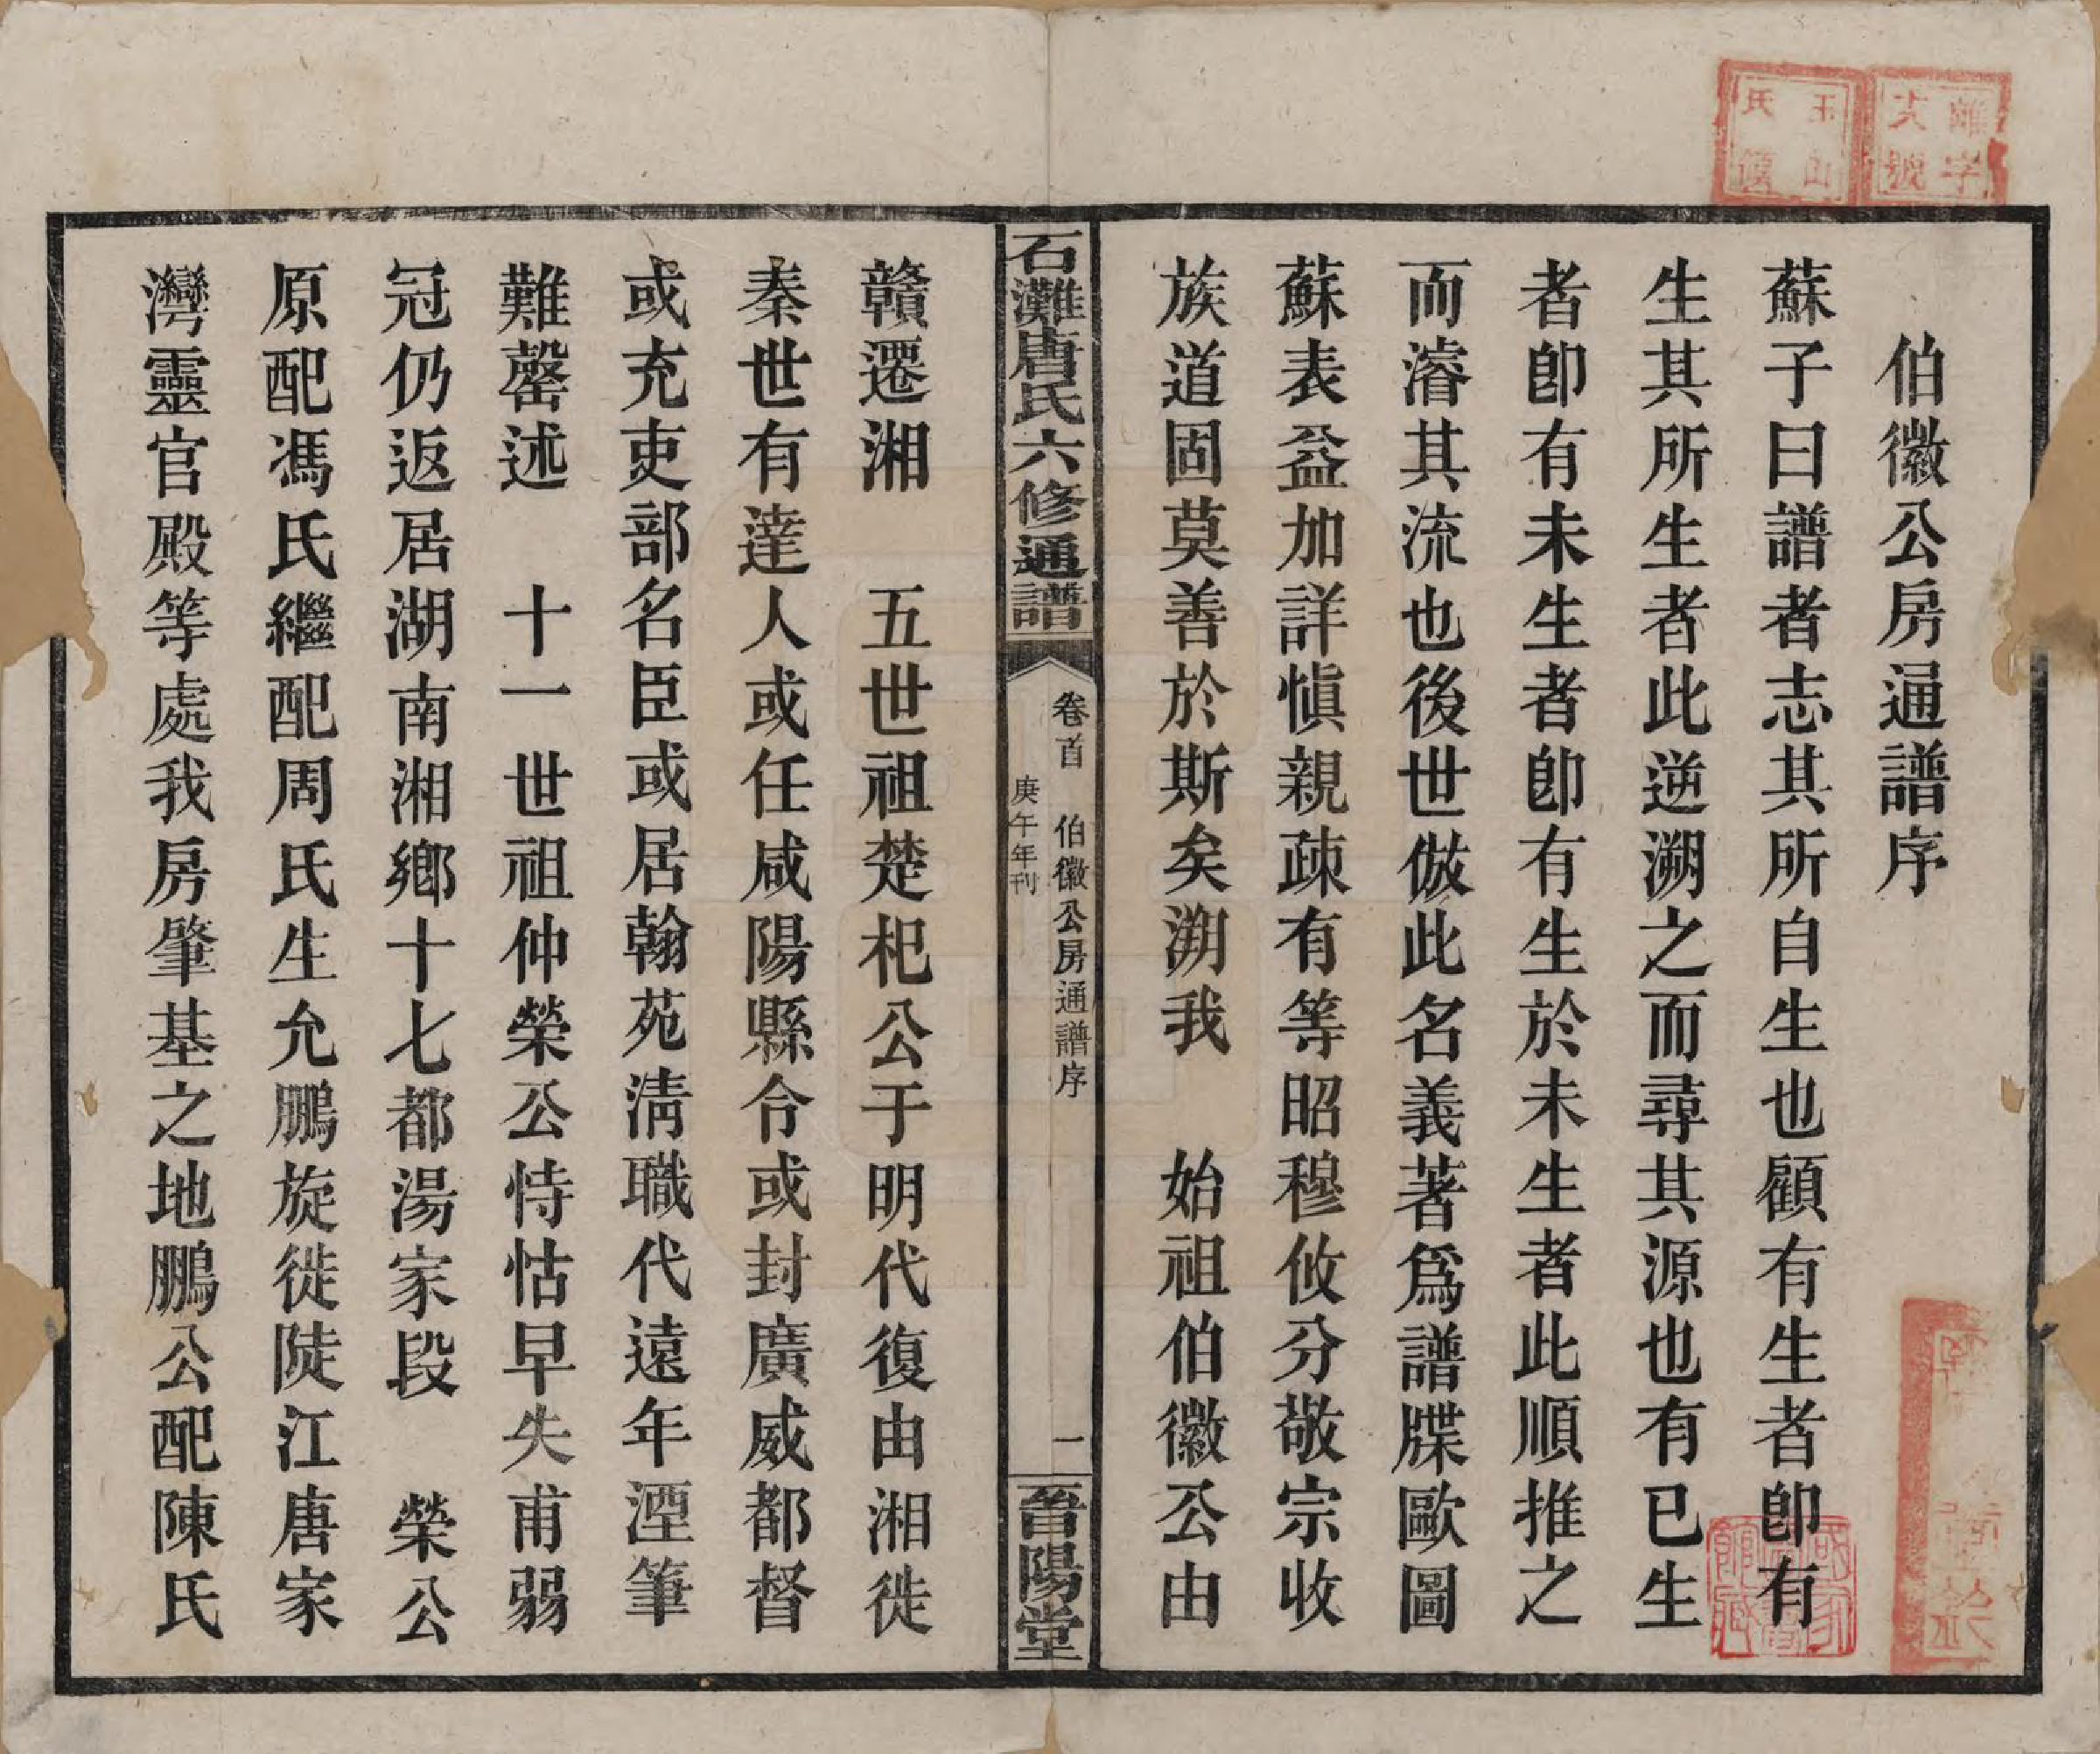 伯徽公房通譜序
蘇子曰譜者志其所自生也顧有生者卽有
生其所生者此逆溯之而尋其源也有已生
者卽有未生者卽有生於未生者此順推之
而濬其流也後世倣此名義著爲譜牒歐圖
蘇表益加詳慎親疎有等昭穆攸分敬宗收
族道固莫善於斯矣溯我　始祖伯徽公由
石灘唐氏六修通譜
卷首　伯徽公房通譜序
一
庚午年刊
晉陽堂
贛遷湘　五世祖楚杞公于明代復由湘徙
秦世有達人或任咸陽縣令或封廣威都督
或充吏部名臣或居翰苑淸職代遠年湮筆
難罄述　十一世祖仲榮公恃怙早失甫弱
冠仍返居湖南湘鄕十七都湯家段　榮公
原配馮氏繼配周氏生允鵬旋徙陡江唐家
灣靈官殿等處我房肇基之地鵬公配陳氏